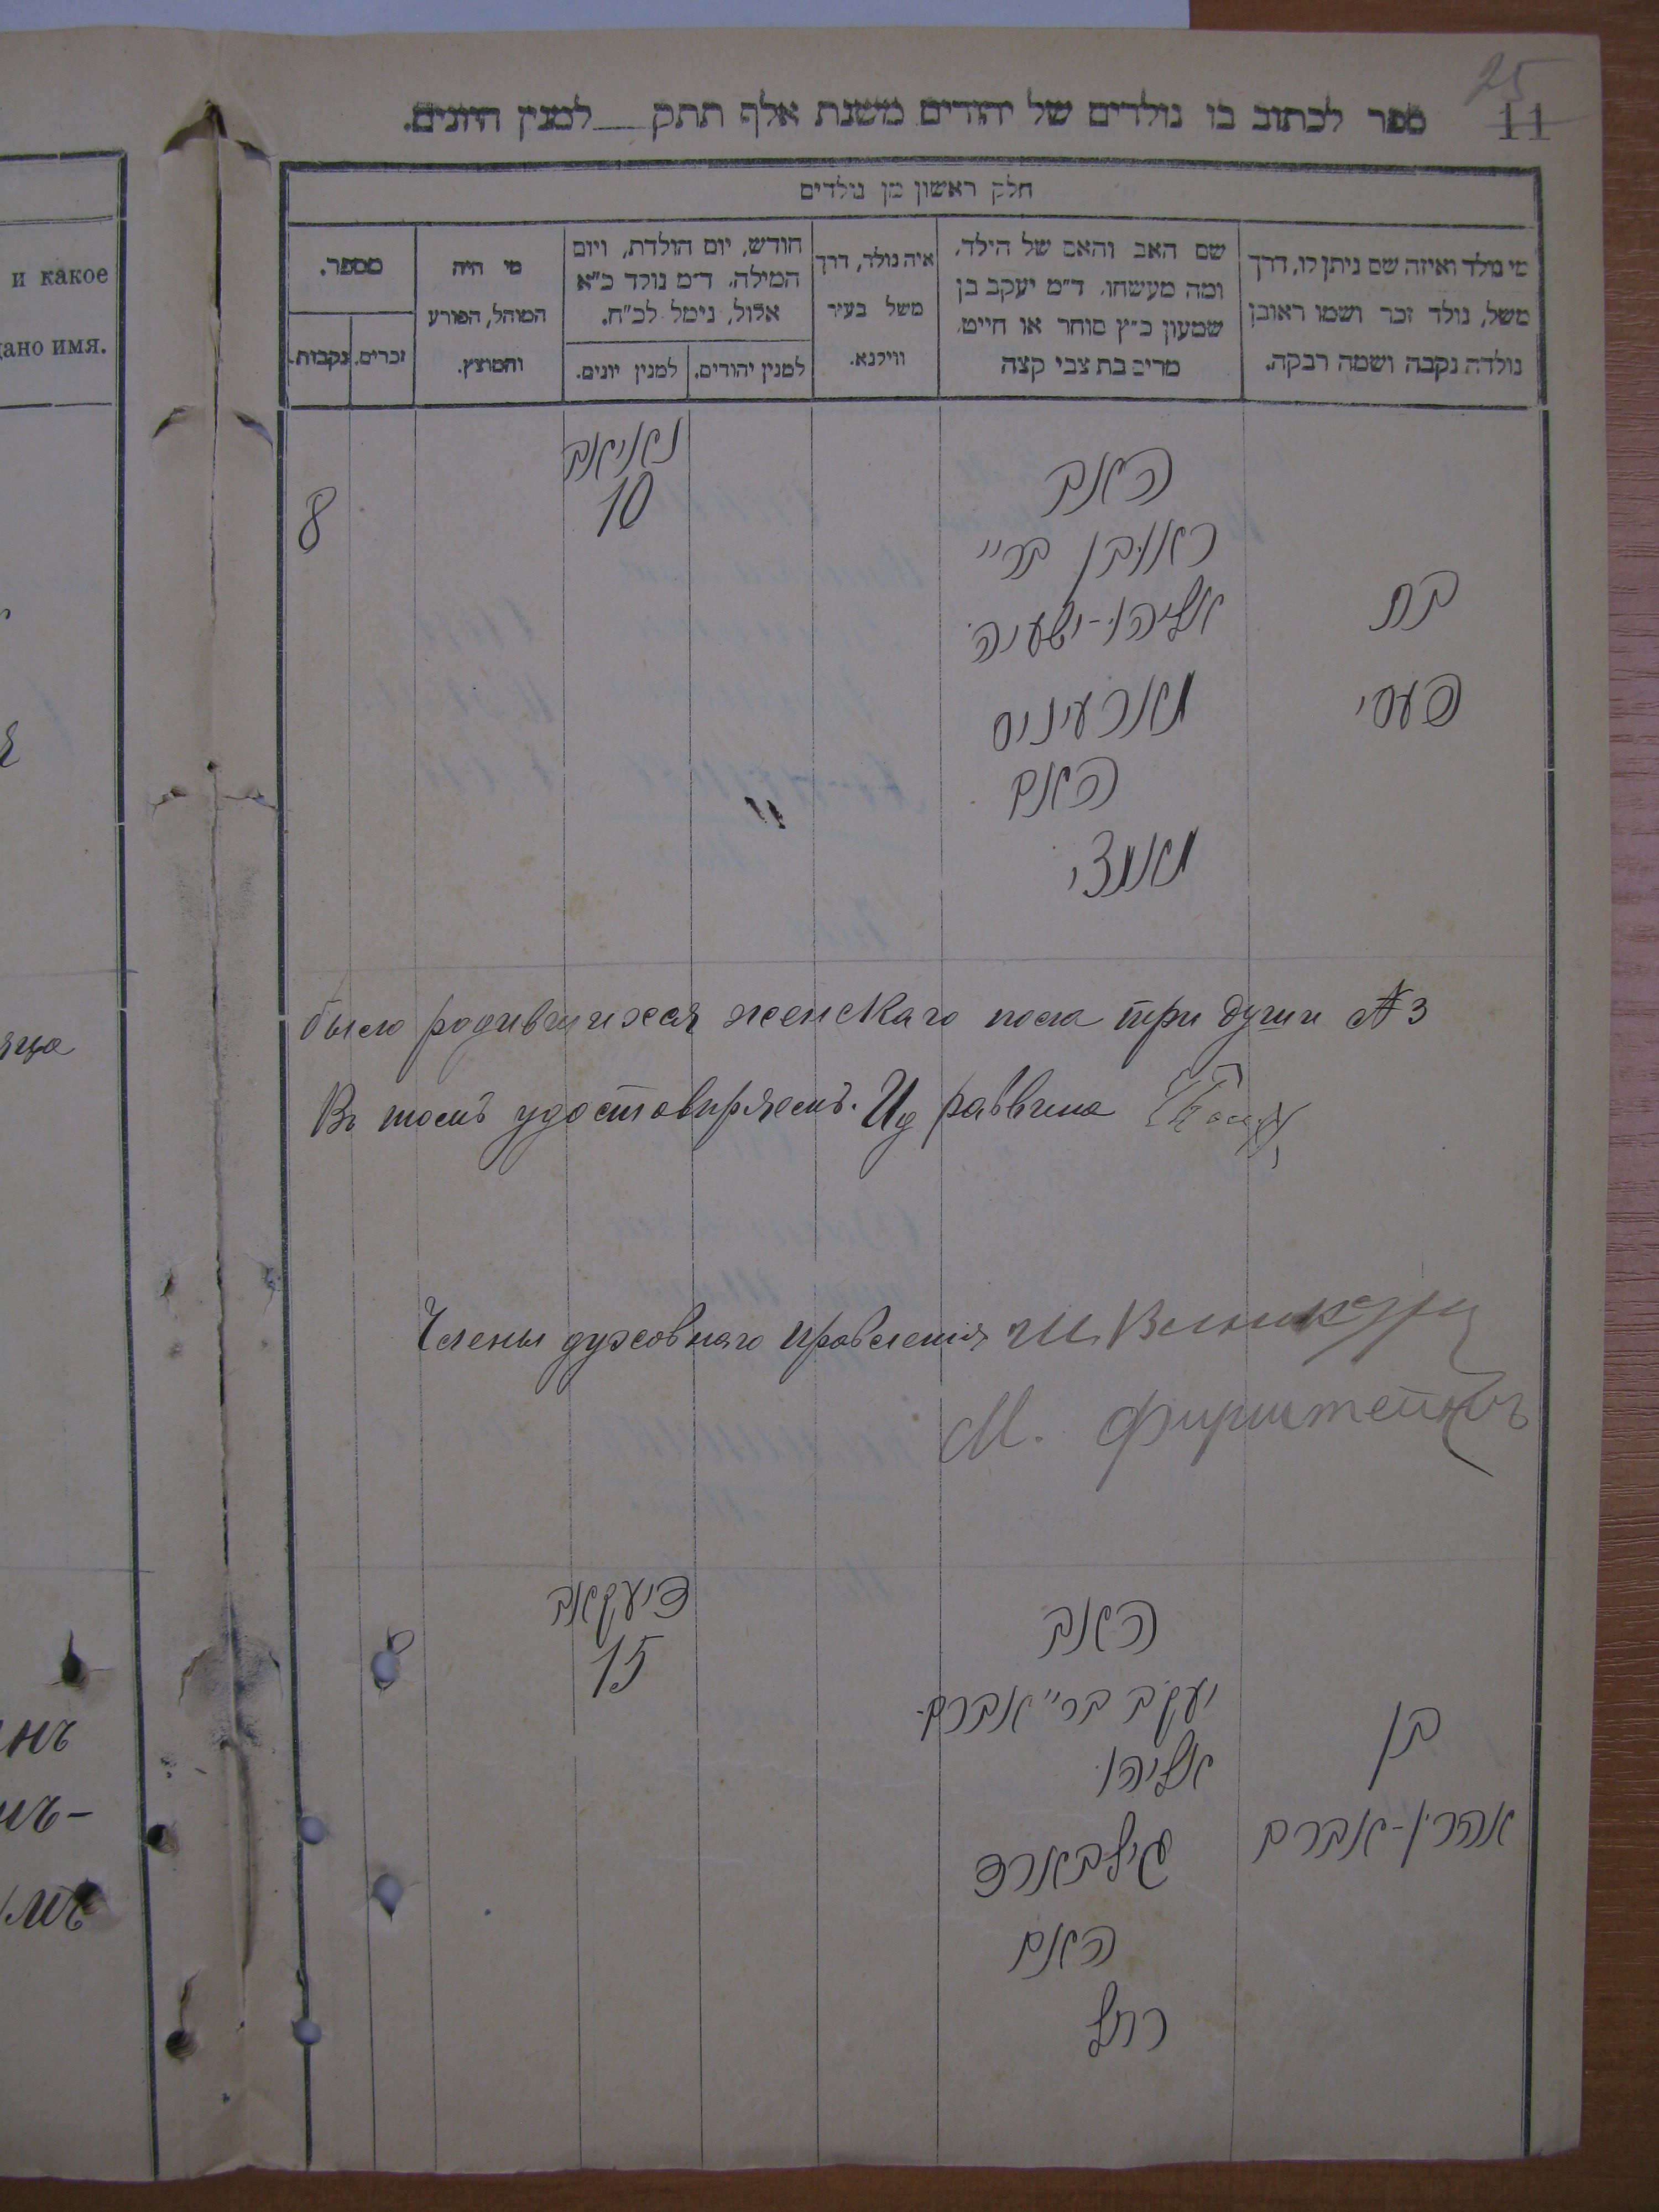 25
11
ספר לכתוב בו נולדים של יהודים משנת אלף תתק___למנין היונים.
חלק ראשון מן נולדים
מי נולד ואיזה שם ניתן לו, דרך
משל, נולד זכר ושמו ראובן
נולדה נקבה ושמה רבקה.
שם האב והאם של הילד,
ומה מעשהו. ד"מ יעקב בן
שמעון כ"ץ סוחר או חייט,
מרים בת צבי קצה
איה נולד, דרך
משל בעיר
ווילנא.
חודש, יום הולדת, ויום
המילה. ד"מ נולד כ"א
אלול, נימל לכ"ח.
למנין יהודים.
למנין יונים.
מי היה
המוהל, הפורע
והמוצץ.
מספר.
זכרים.
נקבות.
и какое
дано имя.
בת
פעסי
האב
ראובן בר"
אליהו-ישעיה
האם
10
8
было родившихся женскаго пола три души № 3
Въ томъ удостовѣряемъ. Ид раввина
Члены духовнаго правленія
М. Фирштейнъ
בן
אהרן-אברם
האב
יעקב בר" אברם
אליהו
האם
רחל
15